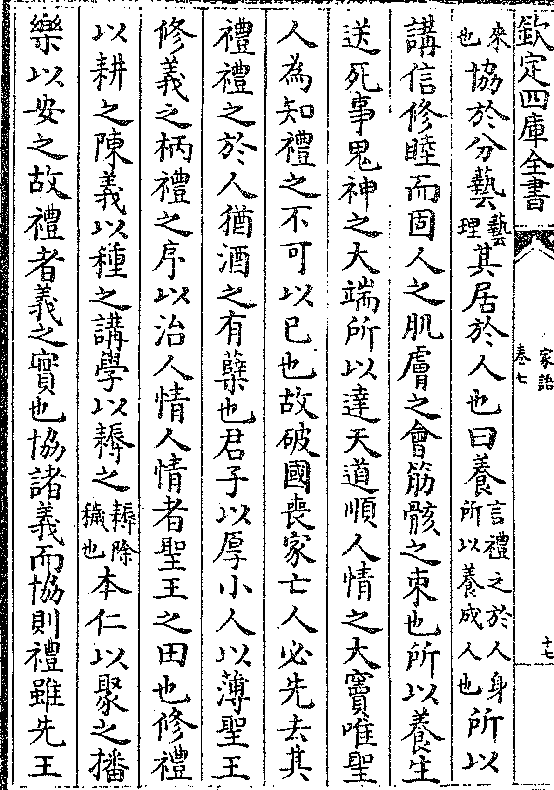 欽定四庫全書
家語
卷七
十七
來也協於分藝藝理其居於人也曰養言禮之於人身所以養成人也所以
講信修睦而固人之肌膚之會筋骸之束也所以養生
送死事鬼神之大端所以達天道順人情之大竇唯聖
人為知禮之不可以已也故破國喪家亡人必先去其
禮禮之於人猶酒之有糵也君子以厚小人以薄聖王
修義之柄禮之序以治人情人情者聖王之田也修禮
以耕之陳義以種之講學以耨之耨除穢也本仁以聚之播
樂以安之故禮者義之實也協諸義而協則禮雖先王